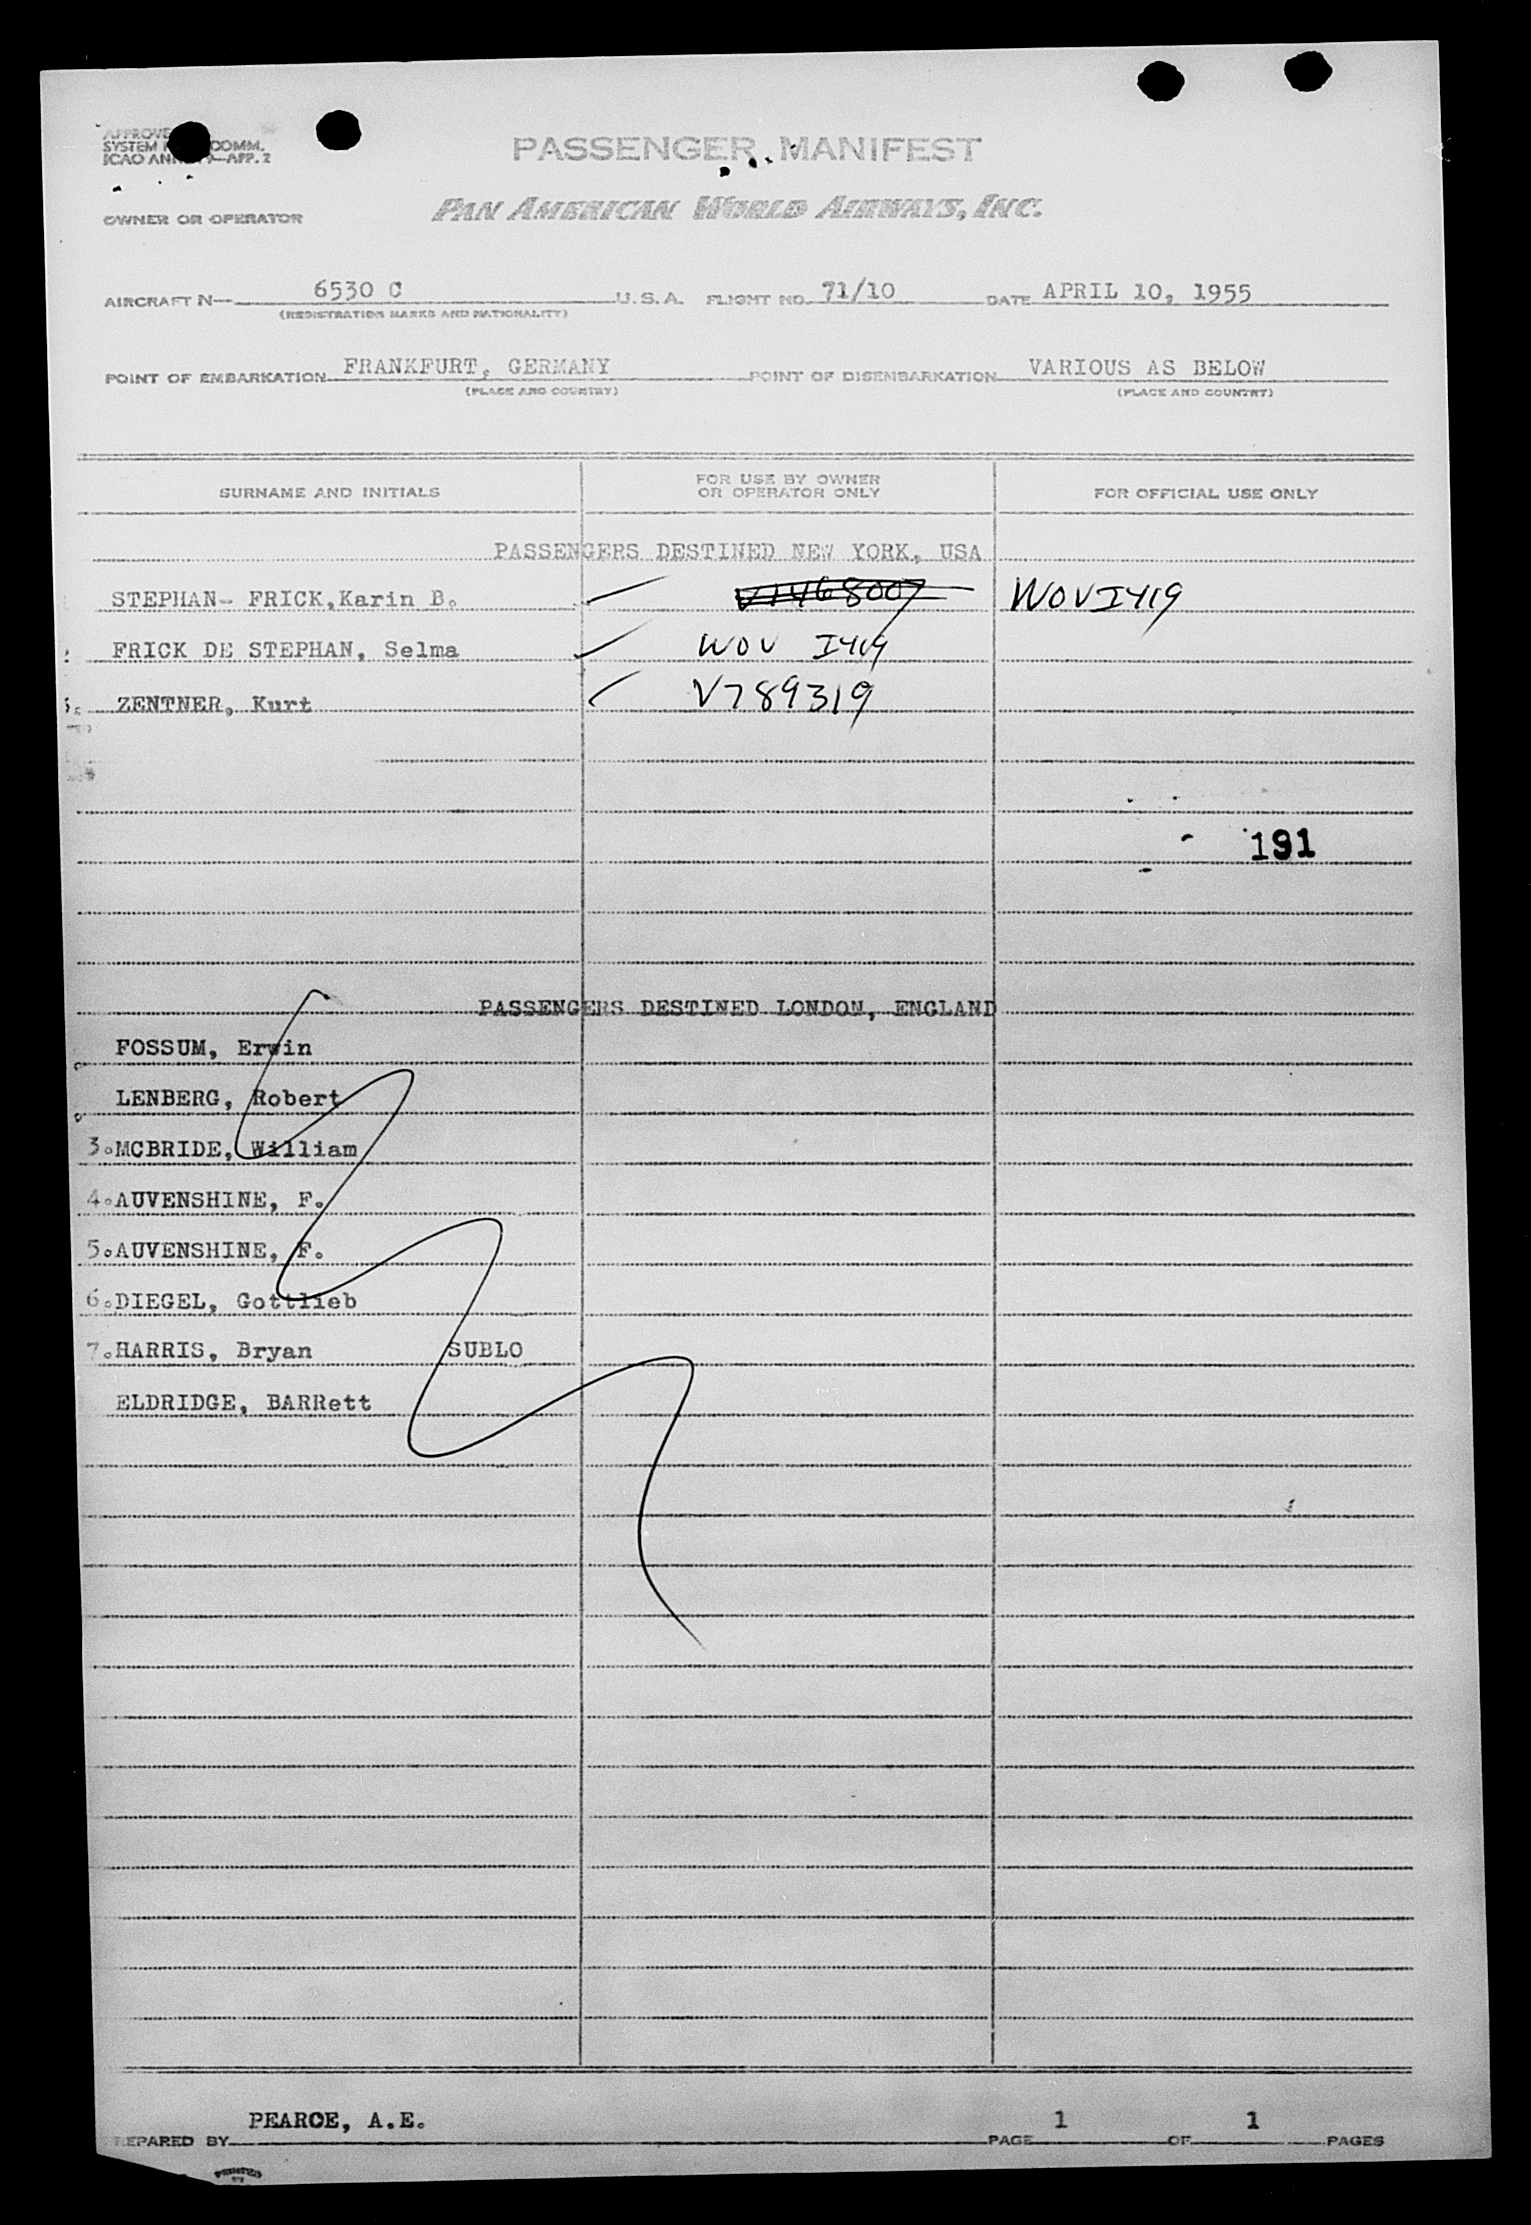 SYSTEM COMM.
PASSENGER MANIFEST
OWNER OR OPERATOR PAN AMERICAN WORLD AIRWAYS, INC.
AIRCRAFT N— 6530 C U.S.A. FLIGHT NO. 71/10 DATE APRIL 10, 1955
(REGISTRATION MARKS AND NATIONALITY)
POINT OF EMBARKATION FRANKFURT, GERMANY POINT OF DISEMBARKATION VARIOUS AS BELOW
(PLACE AND COUNTRY) (PLACE AND COUNTRY)
SURNAME AND INITIALS FOR USE BY OWNER OR OPERATOR ONLY FOR OFFICIAL USE ONLY
PASSENGERS DESTINED NEW YORK, USA
STEPHAN- FRICK,Karin B. V1468007 WOVI419
FRICK DE STEPHAN, Selma WOV I419
ZENTNER, Kurt V789319
191
PASSENGERS DESTINED LONDON, ENGLAND
FOSSUM, Erwin
LENBERG, Robert
3.MCBRIDE, William
4.AUVENSHINE, F.
5.AUVENSHINE, F.
6.DIEGEL, Gottlieb
7.HARRIS, Bryan SUBLO
ELDRIDGE, BARRett
PEARCE, A.E. 1 1
PREPARED BY PAGE OF PAGES
PRINTED